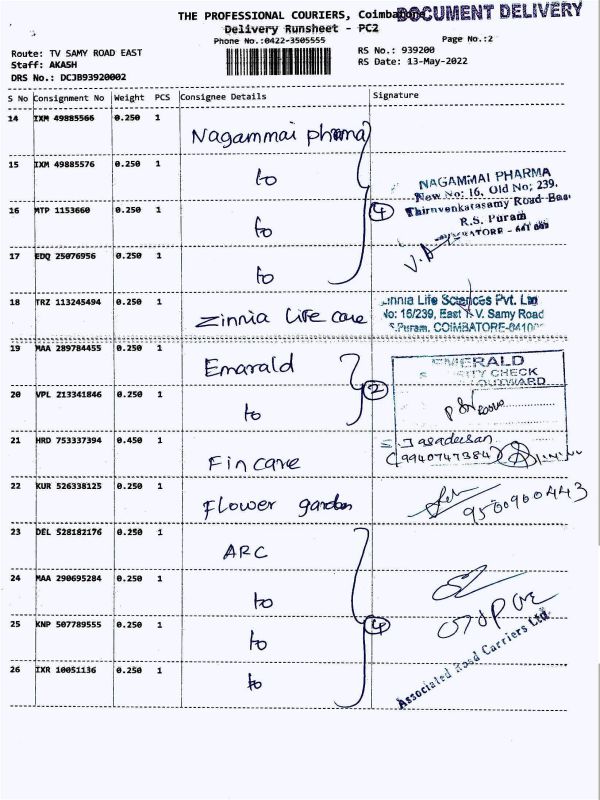 THE PROFESSIONAL COURIERS, Coimbatore
DOCUMENT DELIVERY
Delivery Runsheet - PC2
Phone No.:0422-3505555
Page No.:2
Route: TV SAMY ROAD EAST
RS No.: 939200
Staff: AKASH
RS Date: 13-May-2022
DRS No.: DCJB93920002
S No Consignment No Weight PCS Consignee Details Signature
14 IXM 49885566 0.250 1 Nagammai pharma
15 IXM 49885576 0.250 1 to
NAGAMMAI PHARMA
New No: 16, Old No; 239,
16 MTP 1153660 0.250 1 to 4
Thiruvenkatasamy Road East
R.S. Puram
17 EDQ 25076956 0.250 1 to
V.A
18 TRZ 113245494 0.250 1 Zinnia Life care
Zinnia Life Sciences Pvt. Ltd
No: 16/239, East T.V. Samy Road
R.S.Puram, COIMBATORE-64100
19 MAA 289784455 0.250 1 Emerald
EMERALD
SECURITY CHECK
OUTWARD
20 VPL 213341846 0.250 1 to 2
21 HRD 753337394 0.450 1 Fincare
9940747384
22 KUR 526338125 0.250 1 Flower garden
9500900443
23 DEL 528182176 0.250 1 ARC
24 MAA 290695284 0.250 1 to
25 KNP 507789555 0.250 1 to 4
26 IXR 10051136 0.250 1 to
Associated Road Carriers Ltd.